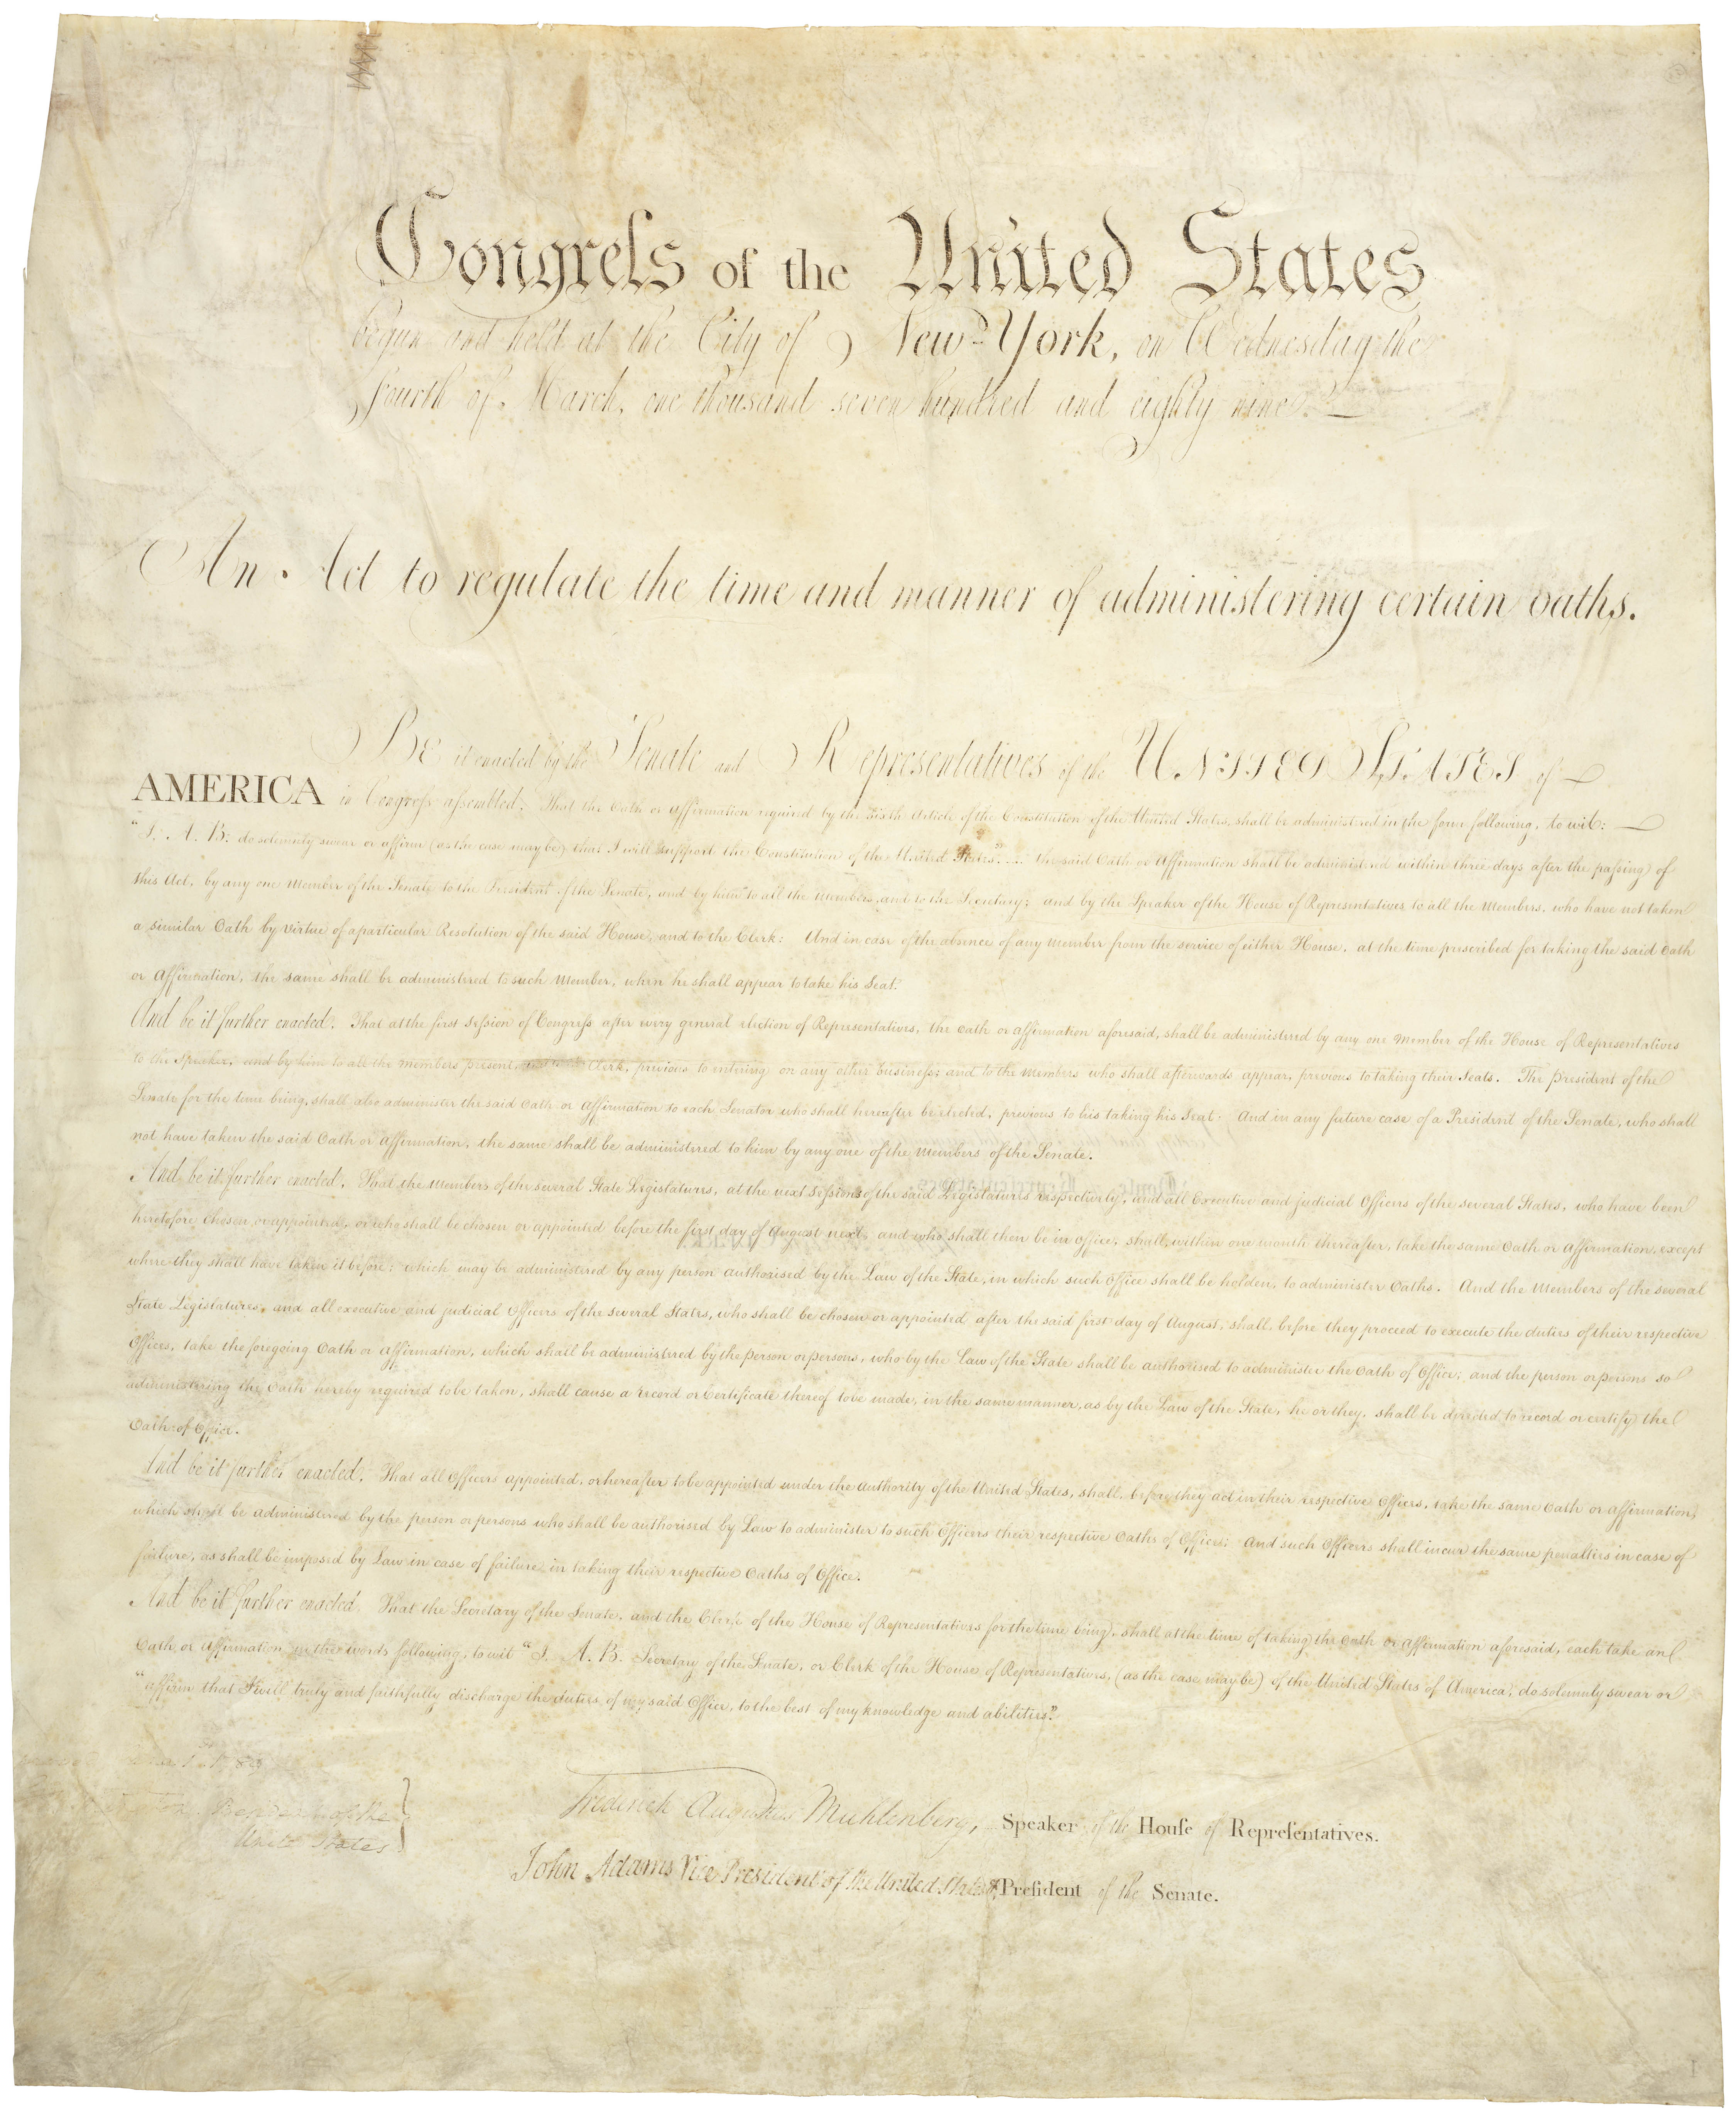 Congreſs of the United States
begun and held at the City of New-York, on Wednesday the
fourth of March, one thousand seven hundred and eighty nine.
An Act to regulate the time and manner of administering certain oaths.
BE it enacted by the Senate and Representatives of the UNITED STATES of
AMERICA in Congreſs aſsembled, That the Oath or Affirmation required by the sixth Article of the Constitution of the United States, shall be administered in the form following, to wit:
"I, A. B. do solemnly swear or affirm (as the case may be) that I will support the Constitution of the United States." The said Oath or Affirmation shall be administered within three days after the paſsing of
this Act, by any one Member of the Senate to the President of the Senate, and by him to all the Members, and to the Secretary; and by the Speaker of the House of Representatives, to all the Members, who have not taken
a similar Oath by virtue of a particular Resolution of the said House, and to the Clerk: And in case of the absence of any Member from the service of either House, at the time prescribed for taking the said Oath
or Affirmation, the same shall be administered to such Member, when he shall appear to take his Seat.
And be it further enacted, That at the first Seſsion of Congreſs after every general election of Representatives, the Oath or affirmation aforesaid, shall be administered by any one Member of the House of Representatives
to the Speaker, and by him to all the members present, Clerk, previous to entering on any other business; and to the members who shall afterwards appear, previous to taking their Seats. The President of the
Senate for the time being, shall also administer the said Oath or Affirmation to each Senator who shall hereafter be elected, previous to his taking his Seat: And in any future case of a President of the Senate, who shall
not have taken the said Oath or affirmation, the same shall be administered to him by any one of the Members of the Senate.
And be it further enacted, That the Members of the several State Legislatures, at the next Seſsions of the said Legislatures respectively, and all Executive and judicial Officers of the several States, who have been
heretofore chosen or appointed, or who shall be chosen or appointed before the first day of August next, and who shall then be in office, shall, within one month thereafter, take the same Oath or Affirmation, except
where they shall have taken it before; which may be administered by any person authorised by the Law of the State, in which such Office shall be holden, to administer Oaths. And the Members of the several
State Legislatures, and all executive and judicial Officers of the several States, who shall be chosen or appointed after the said first day of August, shall, before they proceed to execute the duties of their respective
Offices, take the foregoing Oath or affirmation, which shall be administered by the person or persons, who by the Law of the State shall be authorised to administer the Oath of Office; and the person or persons so
administering the Oath hereby required to be taken, shall cause a record or Certificate thereof to be made, in the same manner, as by the Law of the State, he or they, shall be directed to record or certify the
Oath of Office.
And be it further enacted, That all Officers appointed, or hereafter to be appointed under the authority of the United States, shall, before they act in their respective Offices, take the same Oath or affirmation,
which shall be administered by the person or persons who shall be authorised by Law to administer to such Officers their respective Oaths of Office; and such Officers shall incur the same penalties in case of
failure, as shall be imposed by Law in case of failure in taking their respective Oaths of Office.
And be it further enacted, That the Secretary of the Senate, and the Clerk of the House of Representatives for the time being, shall at the time of taking the Oath or Affirmation aforesaid, each take an
Oath or Affirmation in the words following, to wit "I, A. B. Secretary of the Senate, or Clerk of the House of Representatives, (as the case may be) of the United States of America, do solemnly swear or
"affirm that I will truly and faithfully discharge the duties of my said Office, to the best of my knowledge and abilities."
Frederick Augustus Muhlenberg, Speaker of the Houſe of Repreſentatives.
United States
John Adams Vice President of the United States, & Preſident of the Senate.